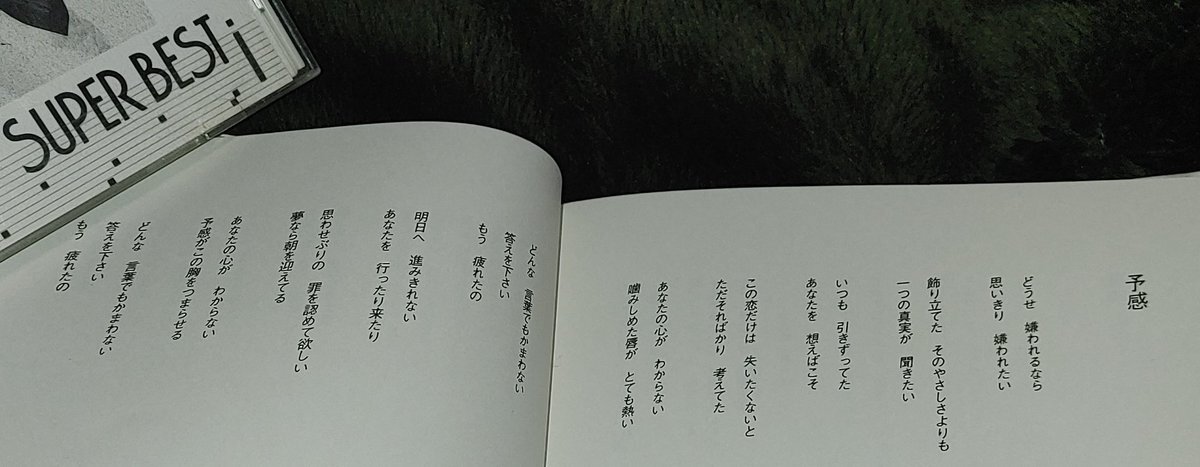 SUPER BEST
予感
どうせ 嫌われるなら
思いきり 嫌われたい
飾り立てた そのやさしさよりも
一つの真実が 聞きたい
いつも 引きずってた
あなたを 想えばこそ
この恋だけは 失いたくないと
ただそればかり 考えてた
あなたの心が わからない
噛みしめた唇が とても熱い
どんな 言葉でもかまわない
答えを下さい
もう 疲れたの
明日へ 進みきれない
あなたを 行ったり来たり
思わせぶりの 罪を認めて欲しい
夢なら朝を迎えてる
あなたの心が わからない
予感がこの胸をつまらせる
どんな 言葉でもかまわない
答えを下さい
もう 疲れたの